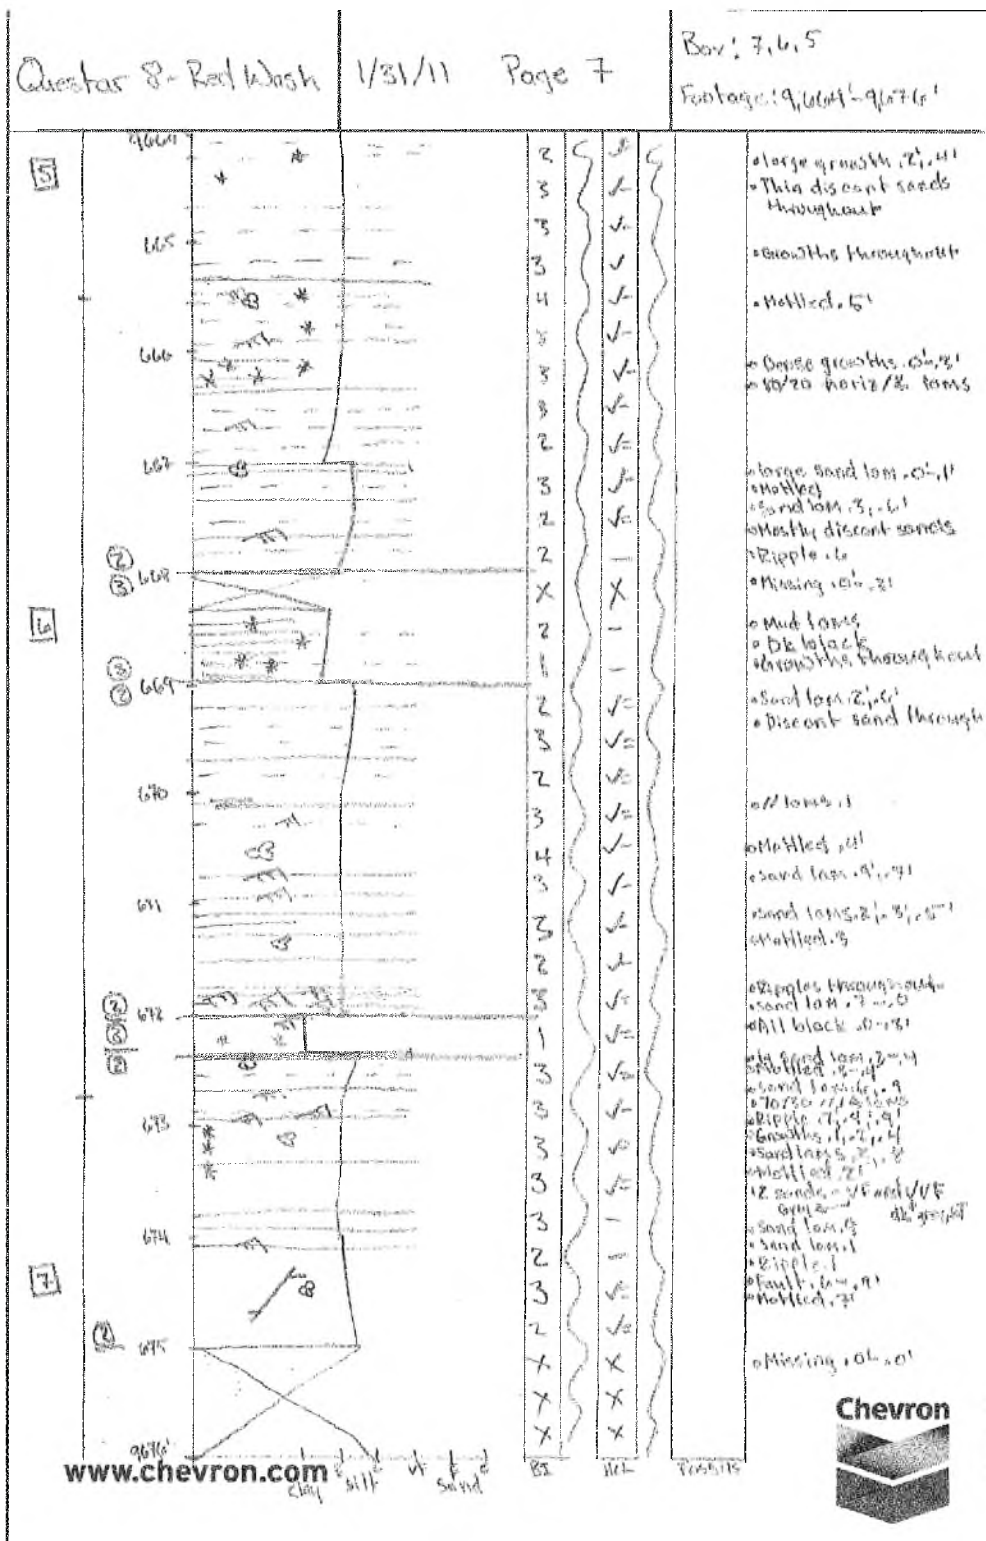 Questar 8-Red Wash
1/31/11
Page 7
Box: 7,6,5
Footage: 9,664'-9,676'
9664
5
665
666
667
2
3
668
6
3
2
669
670
671
2
672
2
2
673
674
7
2
675
9676'
2
3
3
3
4
3
3
3
2
3
2
2
X
2
1
2
3
2
3
4
3
3
2
3
1
3
3
3
3
3
2
3
2
X
X
X
• large growth .2', .4'
• Thin discont sands
throughout
• Growths throughout
• Mottled .5'
• Dense growths .0'-.3'
• 80/20 horiz/ lams
• large sand lam .0'-.1'
• Mottled
• Sand lam .3, .6'
• Mostly discont sands
• Ripple .6
• Missing .0'-.3'
• Mud lams
• Dk black
• Growths throughout
• Sand lam .2', .6'
• Discont sand through
• // lams .1
• Mottled .4'
• Sand lam .9', .7'
• Sand lams .2', .3', .5'
• Mottled .3
• Ripples throughout
• Sand lam .7-.0
• All black .0-.3'
sand lam .3-.4
• Mottled .3-.4
• Sand lam .9
• 70/30 // lams
• Ripple .7, .9', .9'
• Growths .1, .2, .4
• Sand lams
• Mottled .2'
• 2 sands - VF and VVF
• Sand lam
• Sand lam .1
• Ripple .1
• Fault .6-.9'
• Mottled .7'
• Missing .0'-.0'
Clay silt vf f c
Sand
BI
HCL
Fossils
www.chevron.com
Chevron